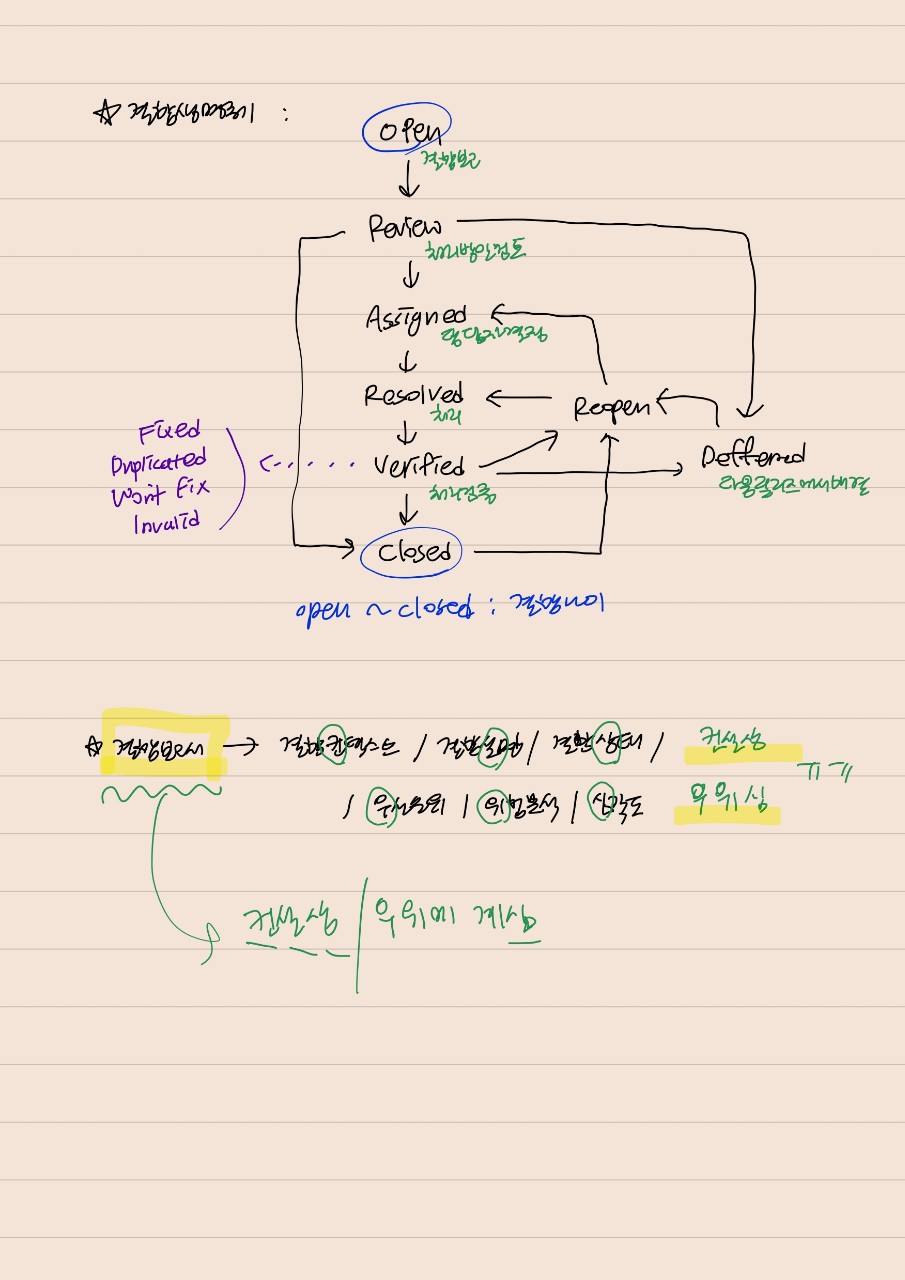 ☆ 결함생명주기 :
Open
결함보고
Review
처리방안검토
Assigned
담당자결정
Resolved
처리
Reopen
Fixed
Duplicated
Won't fix
Invalid
Verified
처리검증
Deffered
다음릴리즈에서해결
Closed
open ~ closed : 결함나이
☆ 결함보고서 → 결함컨텍스트 / 결함설명 / 결함상태 / 컨설상
/ 우선순위 / 위험분석 / 심각도 우위심
컨설상 / 우위에 계심